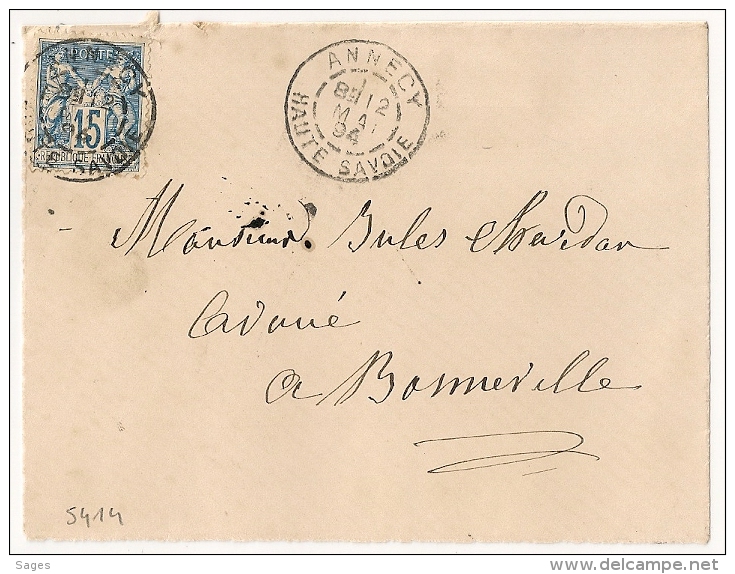 POSTE
15
REPUBLIQUE FRANC
ANNECY
8E 12
MAI
94
HAUTE SAVOIE
Monsieur Jules Chardon
avoué
a Bonneville
5414
Sages
delcampe.net